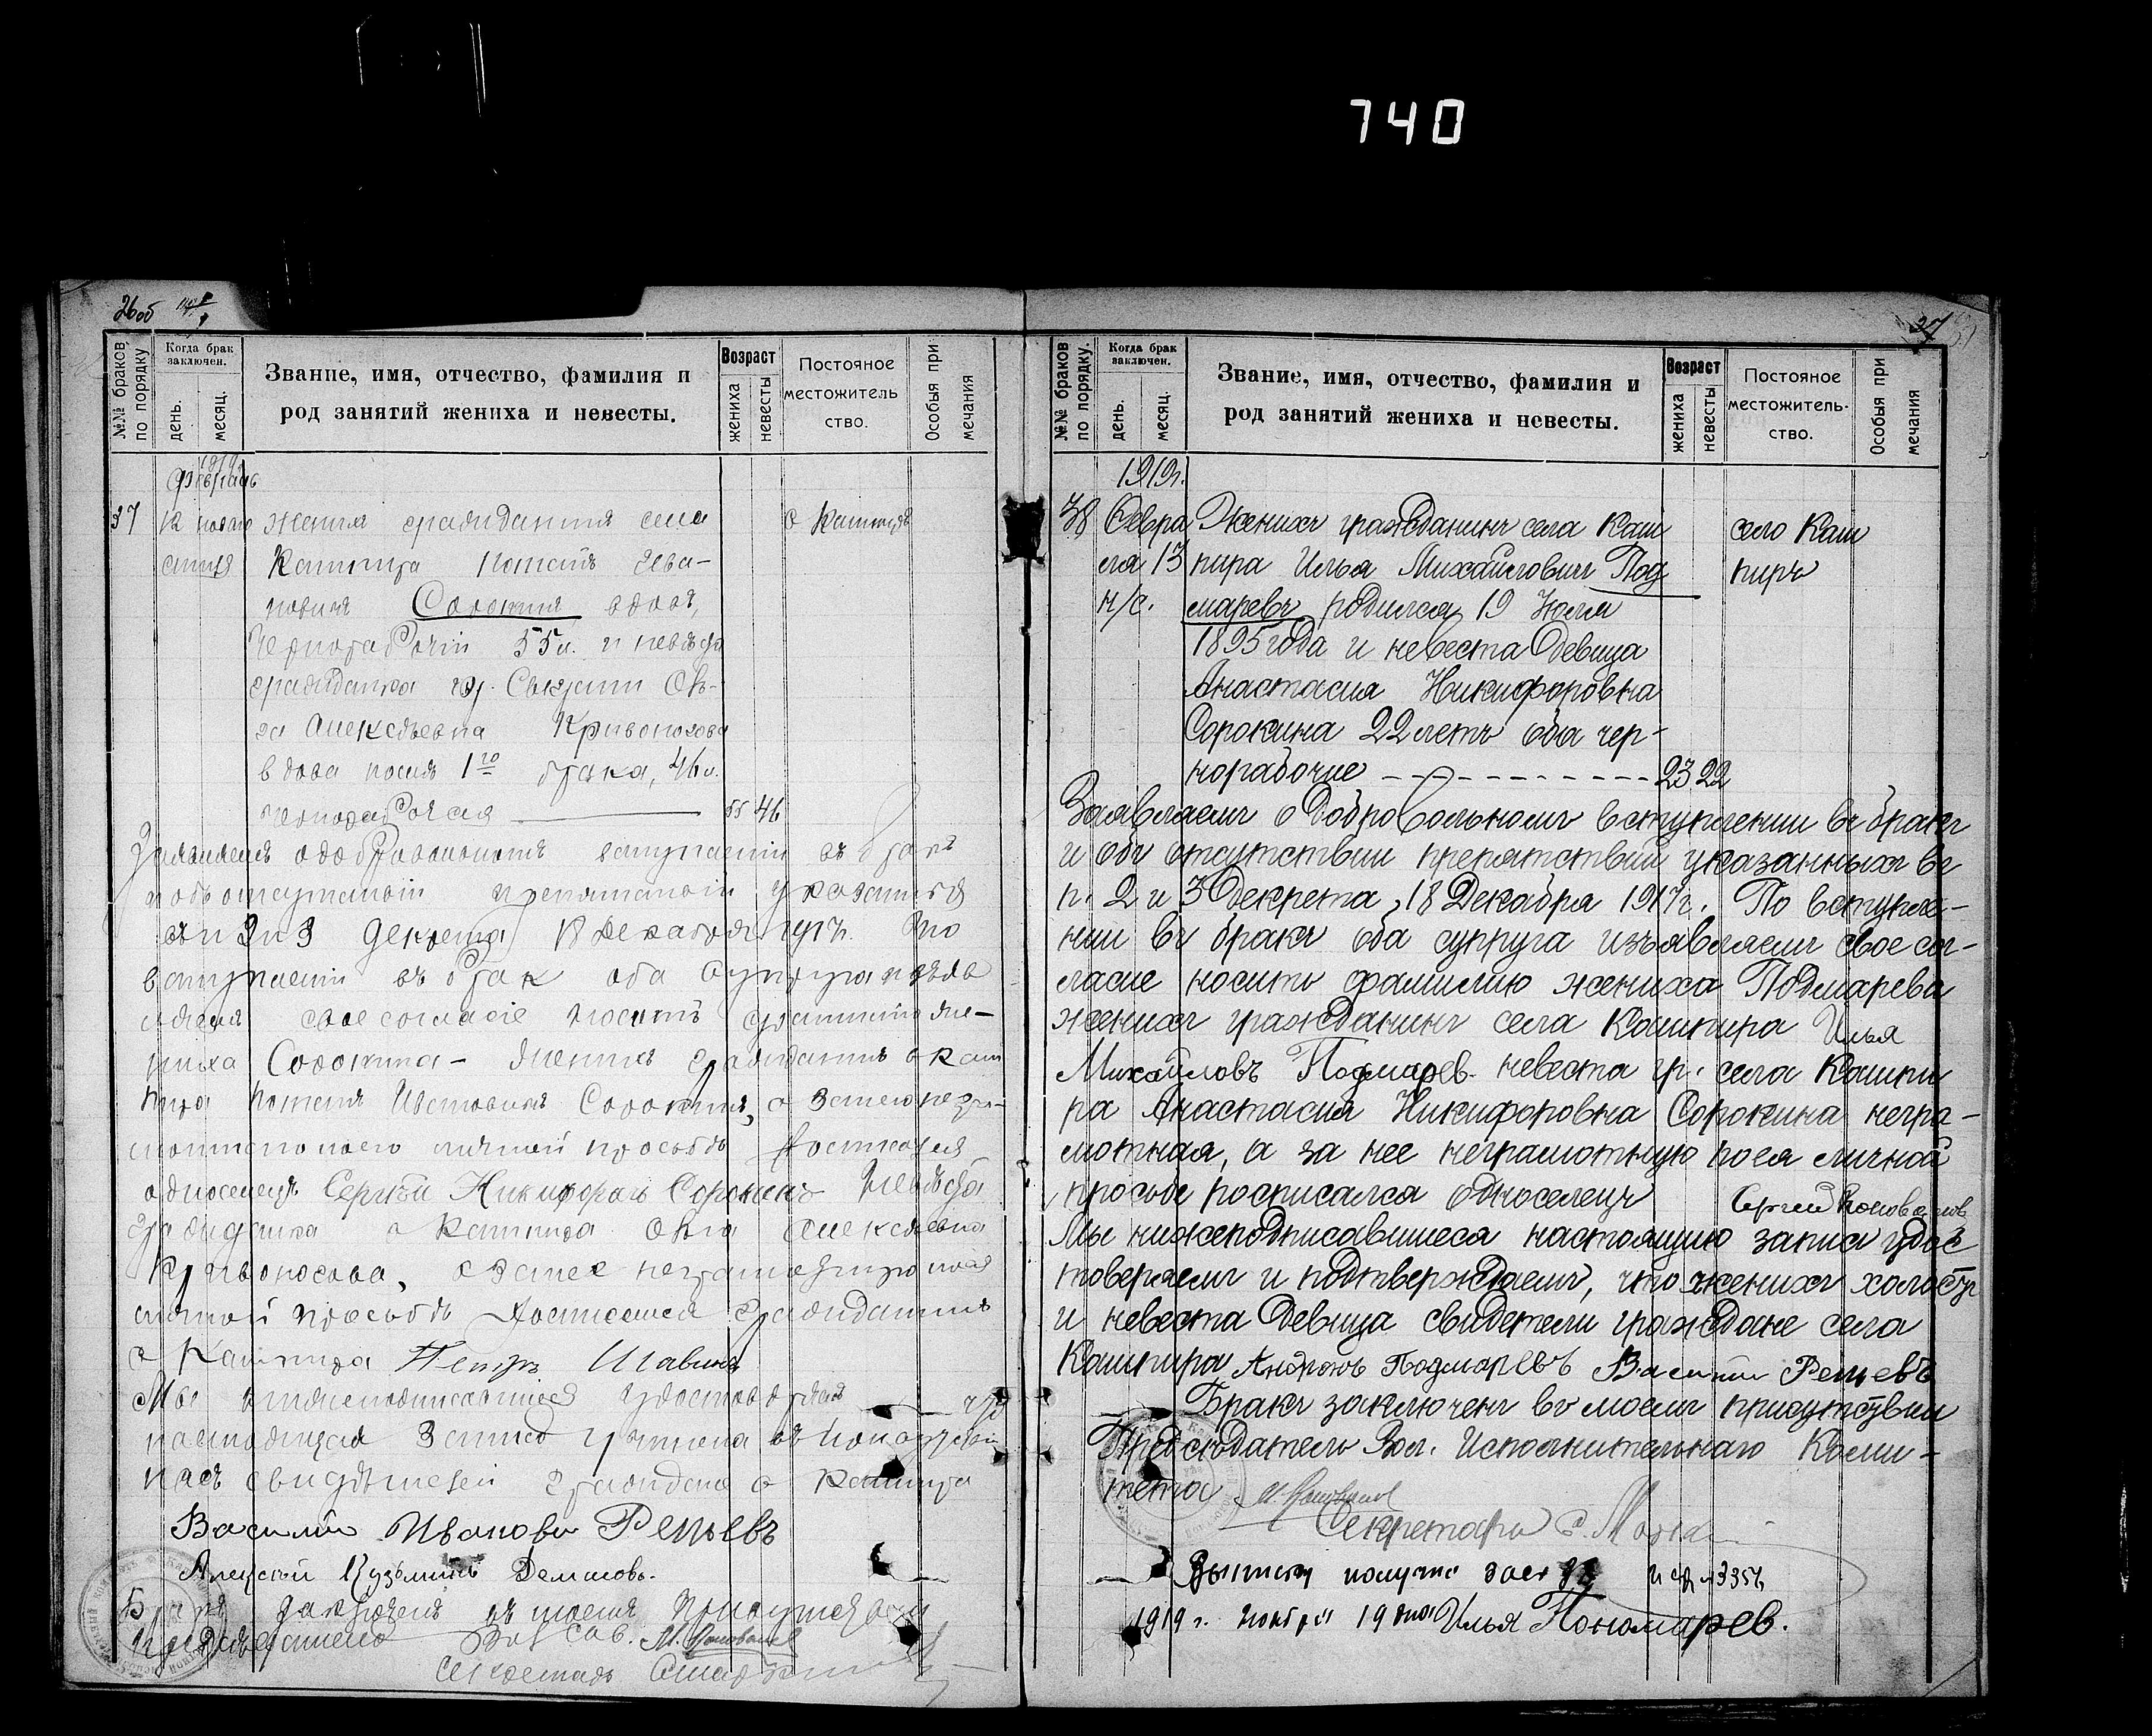 740
26об
№№ браков по порядку
Когда брак заключен.
день.
месяц.
Звание, имя, отчество, фамилия и род занятий жениха и невесты.
Возраст
жениха
невесты
Постояное местожительство.
Особыя примечания
1919г.
Февраль
37 12 жених гражданин села с Кашпир
Кашпира Потап
Сорокин вдов,
чернорабочий 55 л. и невеста
гражданка гор. Сызрани Оль-
га Алексеевна Кривоносова
вдова после 1го брака, 46 л.
чернорабочая 55 46
Заявляем о добровольном вступлении въ брак
и об отсутствии препятствий указанных
въ п 2 и 3 Декрета 18 Декабря 1917г. По
вступлении въ брак оба супруга изъяв
ляем свое согласие носить фамилию же-
ниха Сорокина - Жених гражданин с Каш
пира Потап Сорокин, а за него негра-
мотного по его личной просьбе росписался
односелец Сергей Никифоров Сорокин Невеста
гражданка с Кашпира Ольга Алексеевна
Кривоносова, а за нее неграмотную по ея
личной просьбе росписался гражданин
с Кашпира Петр
Мы нижеподписавшиеся удостоверяем что
настоящая запись
нас свидетелей граждане с Кашпира
Василий Иванови Репьевъ
Алексей Кузьмичъ Демисовъ.
Брак заключен въ моем присутствии
Председатель Вол Сов. М. Коновалов
Секретарь
37
№№ браков по порядку.
Когда брак заключен.
день.
месяц.
Звание, имя, отчество, фамилия и род занятий жениха и невесты.
Возраст
жениха
невесты
Постояное местожитель-ство.
Особыя примечания
1919г.
38 Февра Женихъ гражданинъ села Каш село Каш
ля 13 пира Илья Михайловичъ Под пиръ
н/с. маревъ родился 19 Июля
1895 года и невеста девица
Анастасия Никифоровна
Сорокина 22 летъ оба чер-
норабочие 23 22
Заявляемъ о добровольномъ вступлении въ бракъ
и объ отсутствии препятствий указанныхъ въ
п. 2 и 3 Декрета, 18 Декабря 1917г. По вступле-
нии въ бракъ оба супруга изъявляемъ свое сог-
ласие носить фамилию жениха Подмарева
женихъ гражданинъ села Кашпира Илья
Михайловъ Подмарев. невеста гр. села Кашпи
ра Анастасия Никифоровна Сорокина негра-
мотная, а за нее неграмотную по ея личной
просьбе росписался односелецъ Сергей Коновалов
Мы нижеподписавшиеся настоящую запись удос
товеряемъ и подтверждаемъ, что женихъ холостъ
и невеста девица свидетели граждане села
Кашпира Андрюнъ Подмаревъ Василий Репьевъ
Бракъ заключенъ въ моемъ присутствии
Председатель Вол. Исполнительнаго Коми-
тета М. Коновалов
Секретарь
Выписку получил
1919 г. ноября 19 дня Илья Пономарев.